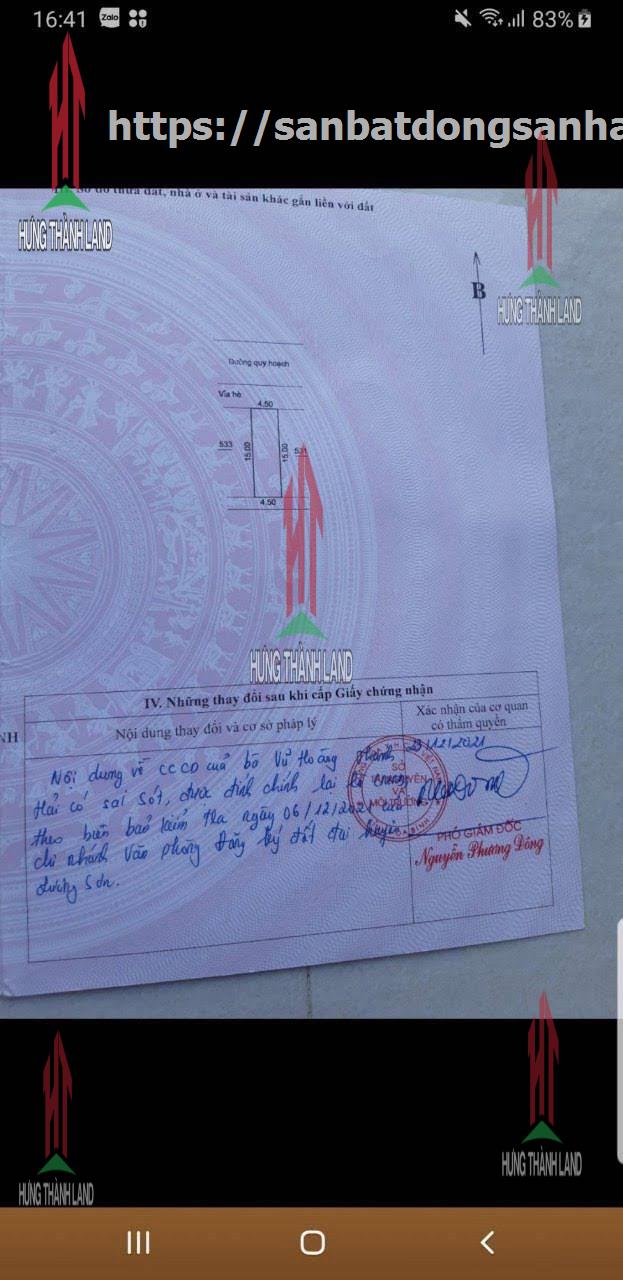 16:41
Zalo
83%
https://sanbatdongsanha
Sơ đồ thửa đất, nhà ở và tài sản khác gắn liền với đất
HƯNG THÀNH LAND
HƯNG THÀNH LAND
B
Đường quy hoạch
Vỉa hè
4.50
533
15.00
15.00
531
4.50
HƯNG THÀNH LAND
IV. Những thay đổi sau khi cấp Giấy chứng nhận
NH
Nội dung thay đổi và cơ sở pháp lý
Xác nhận của cơ quan
có thẩm quyền
Nội dung về CCCD của bà Vũ Hoàng Thanh
Hải có sai sót, được đính chính lại
theo biên bản kiểm tra ngày 06/12/2021 của
chi nhánh Văn phòng Đăng ký đất đai huyện
Lương Sơn.
23/12/2021
SỞ
TÀI NGUYÊN
VÀ
MÔI TRƯỜNG
PHÓ GIÁM ĐỐC
Nguyễn Phương Đông
HƯNG THÀNH LAND
HƯNG THÀNH LAND